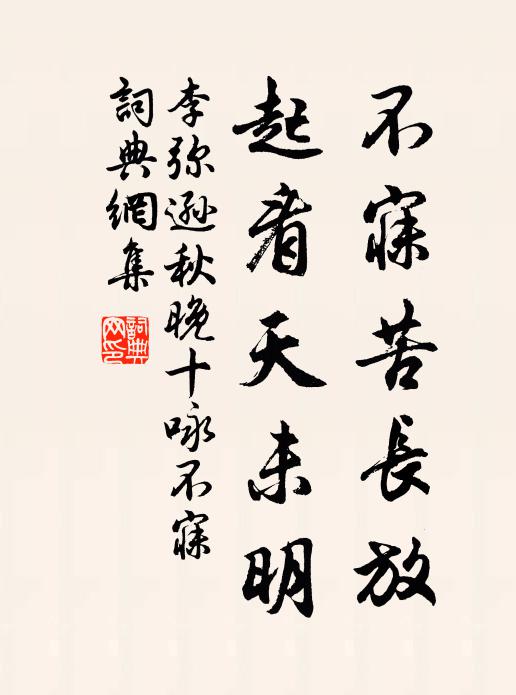 不寐苦長夜
起看天未明
李弥遜秋晚十咏不寐
詞典網集
詞典
网印